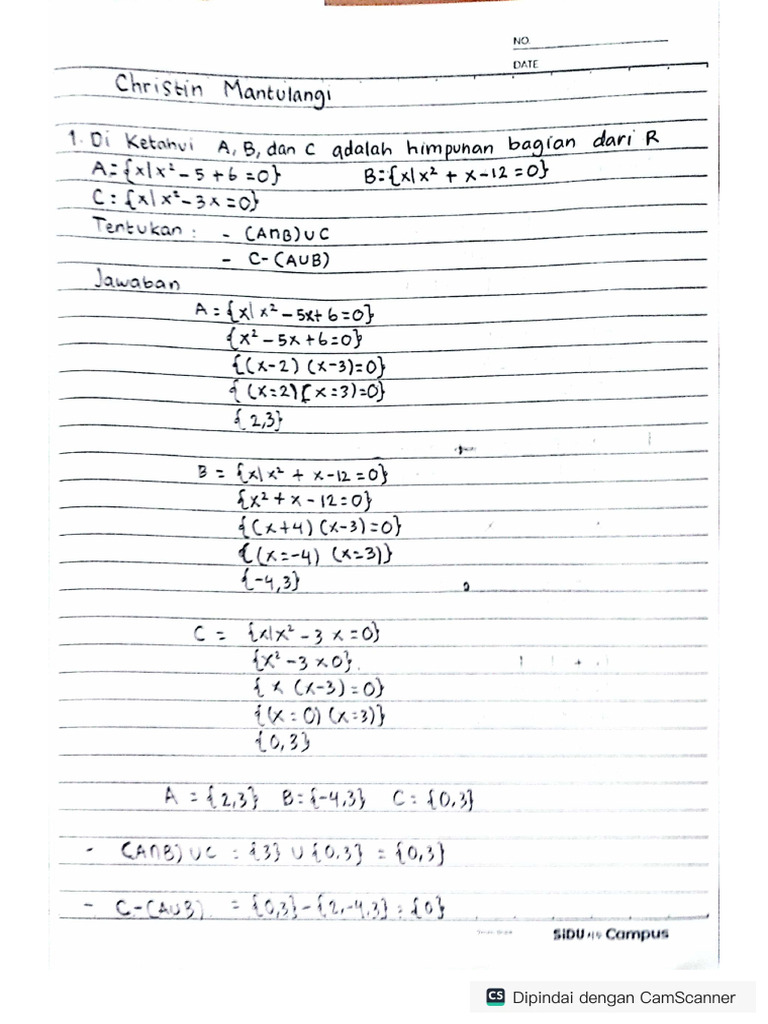 NO.
DATE
Christin Mantulangi
1. Di Ketahui A, B, dan C adalah himpunan bagian dari R
A = {x|x² - 5 + 6 = 0} B = {x|x² + x - 12 = 0}
C : {x|x² - 3x = 0}
Tentukan : - (A∩B)∪C
- C-(A∪B)
Jawaban
A = {x|x² - 5x + 6 = 0}
{x² - 5x + 6 = 0}
{(x-2) (x-3) = 0}
{(x=2) (x=3) = 0}
{2,3}
B = {x|x² + x - 12 = 0}
{x² + x - 12 = 0}
{(x+4) (x-3) = 0}
{(x=-4) (x=3)}
{-4,3}
C = {x|x² - 3x = 0}
{x² - 3x0}.
{x (x-3) = 0}
{(x = 0) (x=3)}
{0,3}
A = {2,3} B = {-4,3} C = {0,3}
- (A∩B)∪C = {3} ∪ {0.3} = {0,3}
- C-(A∪B) = {0,3} - {2,-4,3} = {0}
SiDU Campus
CS Dipindai dengan CamScanner